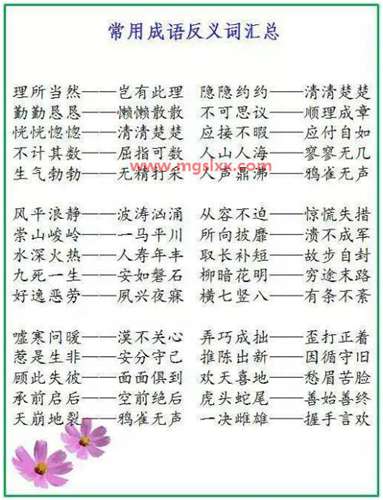 常用成语反义词汇总
理所当然——岂有此理 隐隐约约——清清楚楚
勤勤恳恳——懒懒散散 不可思议——顺理成章
恍恍惚惚——清清楚楚 应接不暇——应付自如
不计其数——屈指可数 人山人海——寥寥无几
www.mgslxx.com
生气勃勃——无精打采 人声鼎沸——鸦雀无声
风平浪静——波涛汹涌 从容不迫——惊慌失措
崇山峻岭——一马平川 所向披靡——溃不成军
水深火热——人寿年丰 取长补短——故步自封
九死一生——安如磐石 柳暗花明——穷途末路
好逸恶劳——夙兴夜寐 横七竖八——有条不紊
嘘寒问暖——漠不关心 弄巧成拙——歪打正着
惹是生非——安分守己 推陈出新——因循守旧
顾此失彼——面面俱到 欢天喜地——愁眉苦脸
承前启后——空前绝后 虎头蛇尾——善始善终
天崩地裂——鸦雀无声 一决雌雄——握手言欢